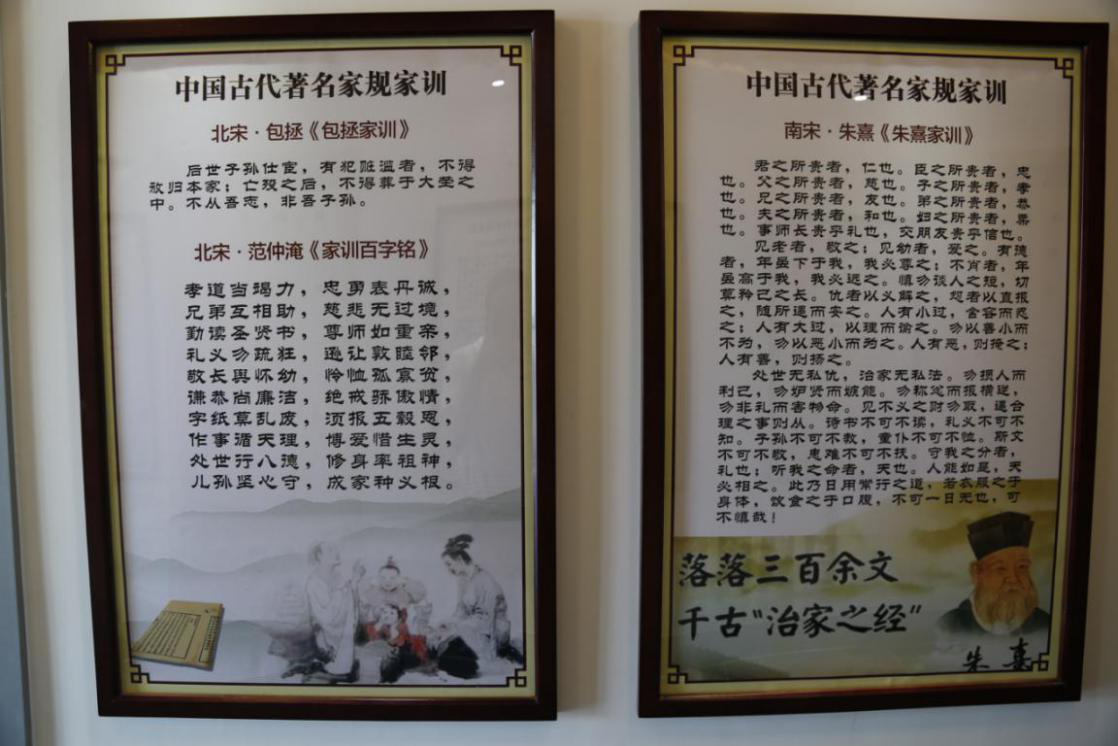 中国古代著名家规家训
北宋·包拯《包拯家训》
后世子孙仕宦，有犯赃滥者，不得
放归本家；亡殁之后，不得葬于大茔之
中。不从吾志，非吾子孙。
北宋·范仲淹《家训百字铭》
孝道当竭力，忠勇表丹诚，
兄弟互相助，慈悲无过境，
勤读圣贤书，尊师如重亲，
礼义勿疏狂，逊让敦睦邻，
敬长与怀幼，怜恤孤寡贫，
谦恭尚廉洁，绝戒骄傲情，
字纸莫乱废，须报五榖恩，
作事循天理，博爱惜生灵，
处世行八德，修身率祖神，
儿孙坚心守，成家种义根。
中国古代著名家规家训
南宋·朱熹《朱熹家训》
君之所贵者，仁也。臣之所贵者，忠
也。父之所贵者，慈也。子之所贵者，孝
也。兄之所贵者，友也。弟之所贵者，恭
也。夫之所贵者，和也。妇之所贵者，柔
也。事师长贵乎礼也，交朋友贵乎信也。
见老者，敬之；见幼者，爱之。有德
者，年虽下于我，我必尊之；不肖者，年
虽高于我，我必远之。慎勿谈人之短，切
莫矜己之长。仇者以义解之，怨者以直报
之，随所遇而安之。人有小过，含容而忍
之；人有大过，以理而谕之。勿以善小而
不为，勿以恶小而为之。人有恶，则掩之；
人有善，则扬之。
处世无私仇，治家无私法。勿损人而
利己，勿妒贤而嫉能。勿称忿而报横逆，
勿非礼而害物命。见不义之财勿取，遇合
理之事则从。诗书不可不读，礼义不可不
知。子孙不可不教，童仆不可不恤。斯文
不可不敬，患难不可不扶。守我之分者，
礼也；听我之命者，天也。人能如是，天
必相之。此乃日用常行之道，若衣服之于
身体，饮食之于口腹，不可一日无也，可
不慎哉！
落落三百余文
千古“治家之经”
朱熹